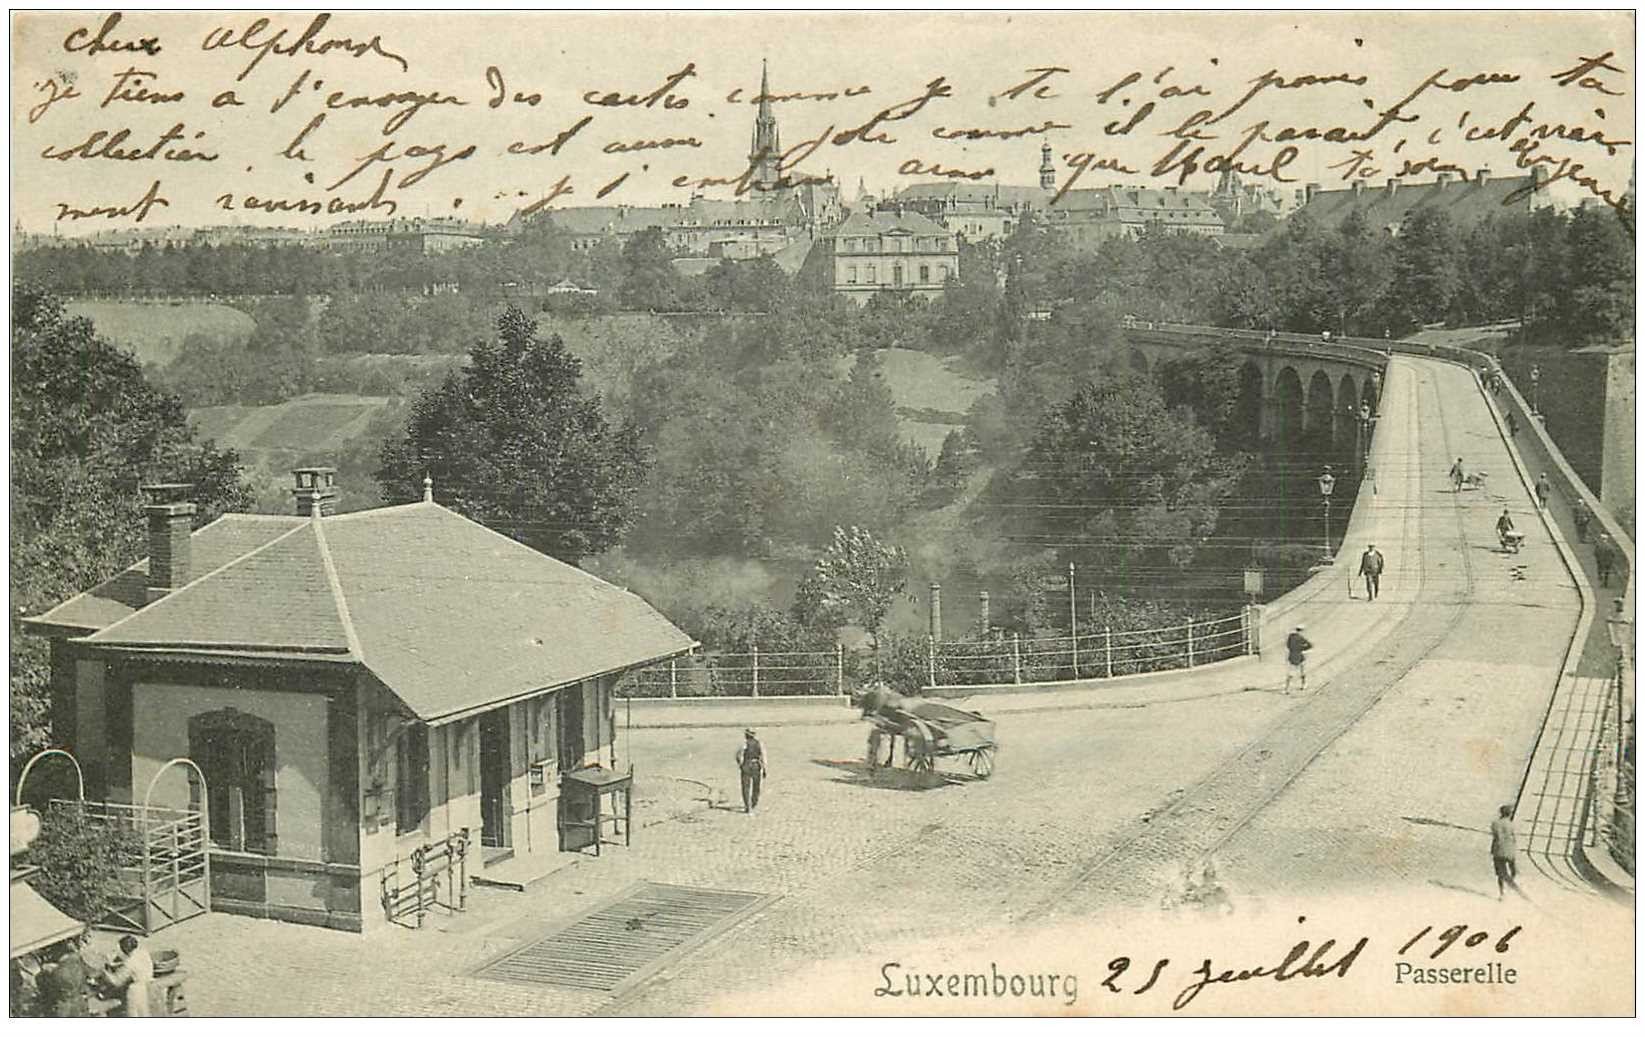 cher Alphonse
je tiens a t'envoyer des cartes comme je te l'ai promis pour ta
collection, le pays est aussi joli comme il le parait, c'est vrai
ment ravissant. je t'embrasse ainsi que
Luxembourg 25 juillet 1906
Passerelle